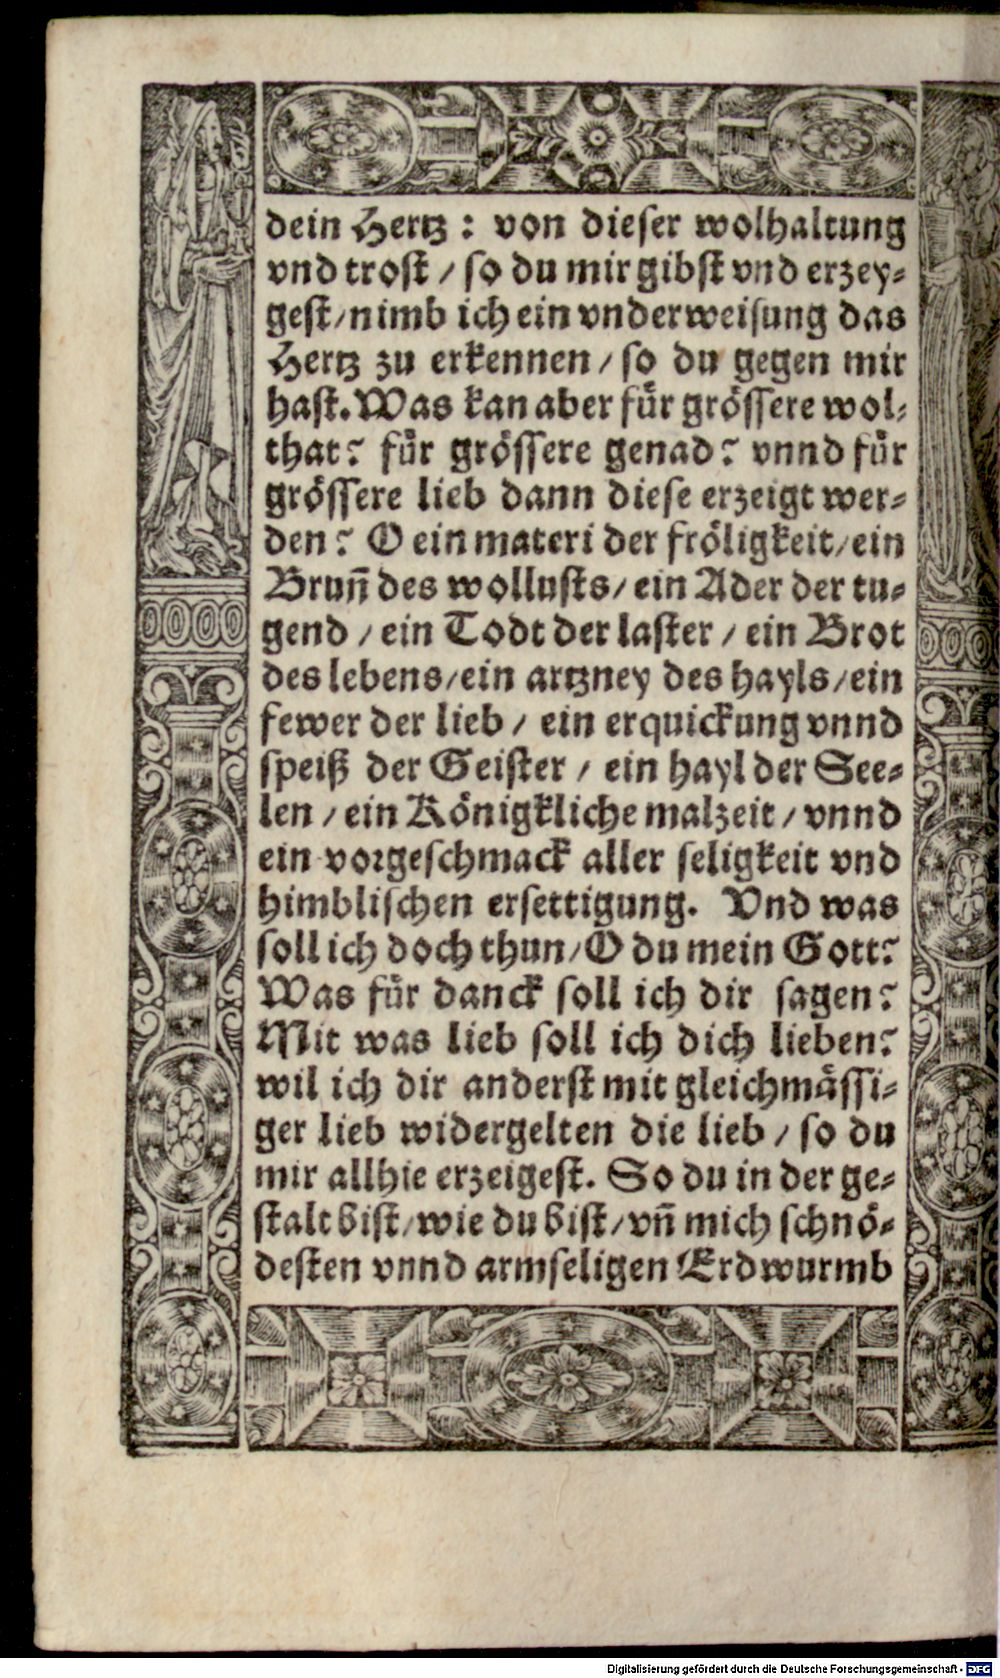 dein Hertz : von dieser wolhaltung
vnd trost / so du mir gibst vnd erzey-
gest / nimb ich ein vnderweisung das
Hertz zu erkennen / so du gegen mir
hast. Was kan aber für grössere wol-
that? für grössere genad? vnnd für
grössere lieb dann diese erzeigt wer-
den? O ein materi der fröligkeit / ein
Brun̄ des wollusts / ein Ader der tu-
gend / ein Todt der laster / ein Brot
des lebens / ein artzney des hayls / ein
fewer der lieb / ein erquickung vnnd
speiß der Geister / ein hayl der See-
len / ein Königkliche malzeit / vnnd
ein vorgeschmack aller seligkeit vnd
himblischen ersettigung. Vnd was
soll ich doch thun / O du mein Gott?
Was für danck soll ich dir sagen?
Mit was lieb soll ich dich lieben?
wil ich dir anderst mit gleichmässi-
ger lieb widergelten die lieb / so du
mir allhie erzeigest. So du in der ge-
stalt bist / wie du bist / vn̄ mich schnö-
desten vnnd armseligen Erdwurmb
Digitalisierung gefördert durch die Deutsche Forschungsgemeinschaft - DFG